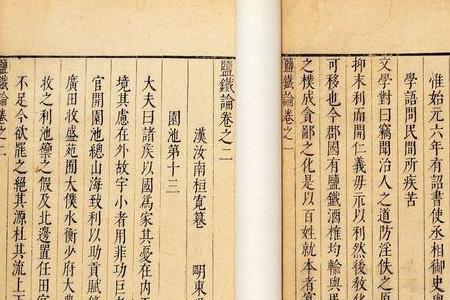 惟始元六年有詔書使丞相御史與
學語問民間所疾苦
文學對曰竊聞治人之道防淫佚之原
抑末利而開仁義毋示以利然後教化
可移也今郡國有鹽鐵酒榷均輸與民
之樸成貪鄙之化是以百姓就本者寡
鹽鐵論卷之一
鹽鐵論卷之二
漢汝南桓寬 明東
園池第十三
大夫曰諸矦以國為家其憂在內
境其慮在外故宇小者用菲功巨
官開園池總山海致利以助貢賦
廣田收盛苑囿太僕水衡少府大
牧之利池籞之假及北邊置任田
不足今欲罷之絕其源杜其流上
鹽鐵論卷之